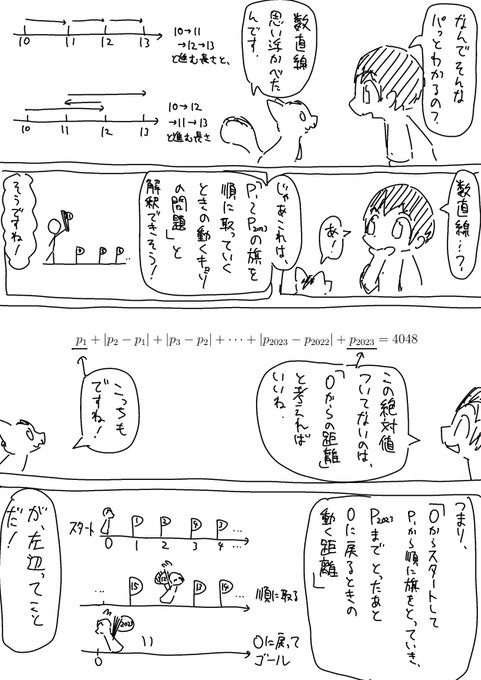 なんでそんな
パッとわかるの？
数直線
思い浮かべた
んです．
10 11 12 13
10→11
→12→13
と進む長さと、
10 11 12 13
10→12
→11→13
と進む長さ
数直線…？
あ！
じゃあこれは、
「P₁〜P₂₀₂₃の旗を
順に取っていく
ときの動くキョリ
の問題」と
解釈できそう！
そうですね！
p₁ + |p₂ − p₁| + |p₃ − p₂| + ⋯ + |p₂₀₂₃ − p₂₀₂₂| + p₂₀₂₃ = 4048
この絶対値
ついてないのは、
「0からの距離」
と考えれば
いいね．
こっちも
ですね！
つまり、
「0からスタートして
P₁から順に旗をとっていき、
P₂₀₂₃までとったあと
0に戻るときの
動く距離」
が、左辺ってこと
だ！
スタート
0 1 2 3 4 …
… 順に取る
2023
0
0に戻って
ゴール